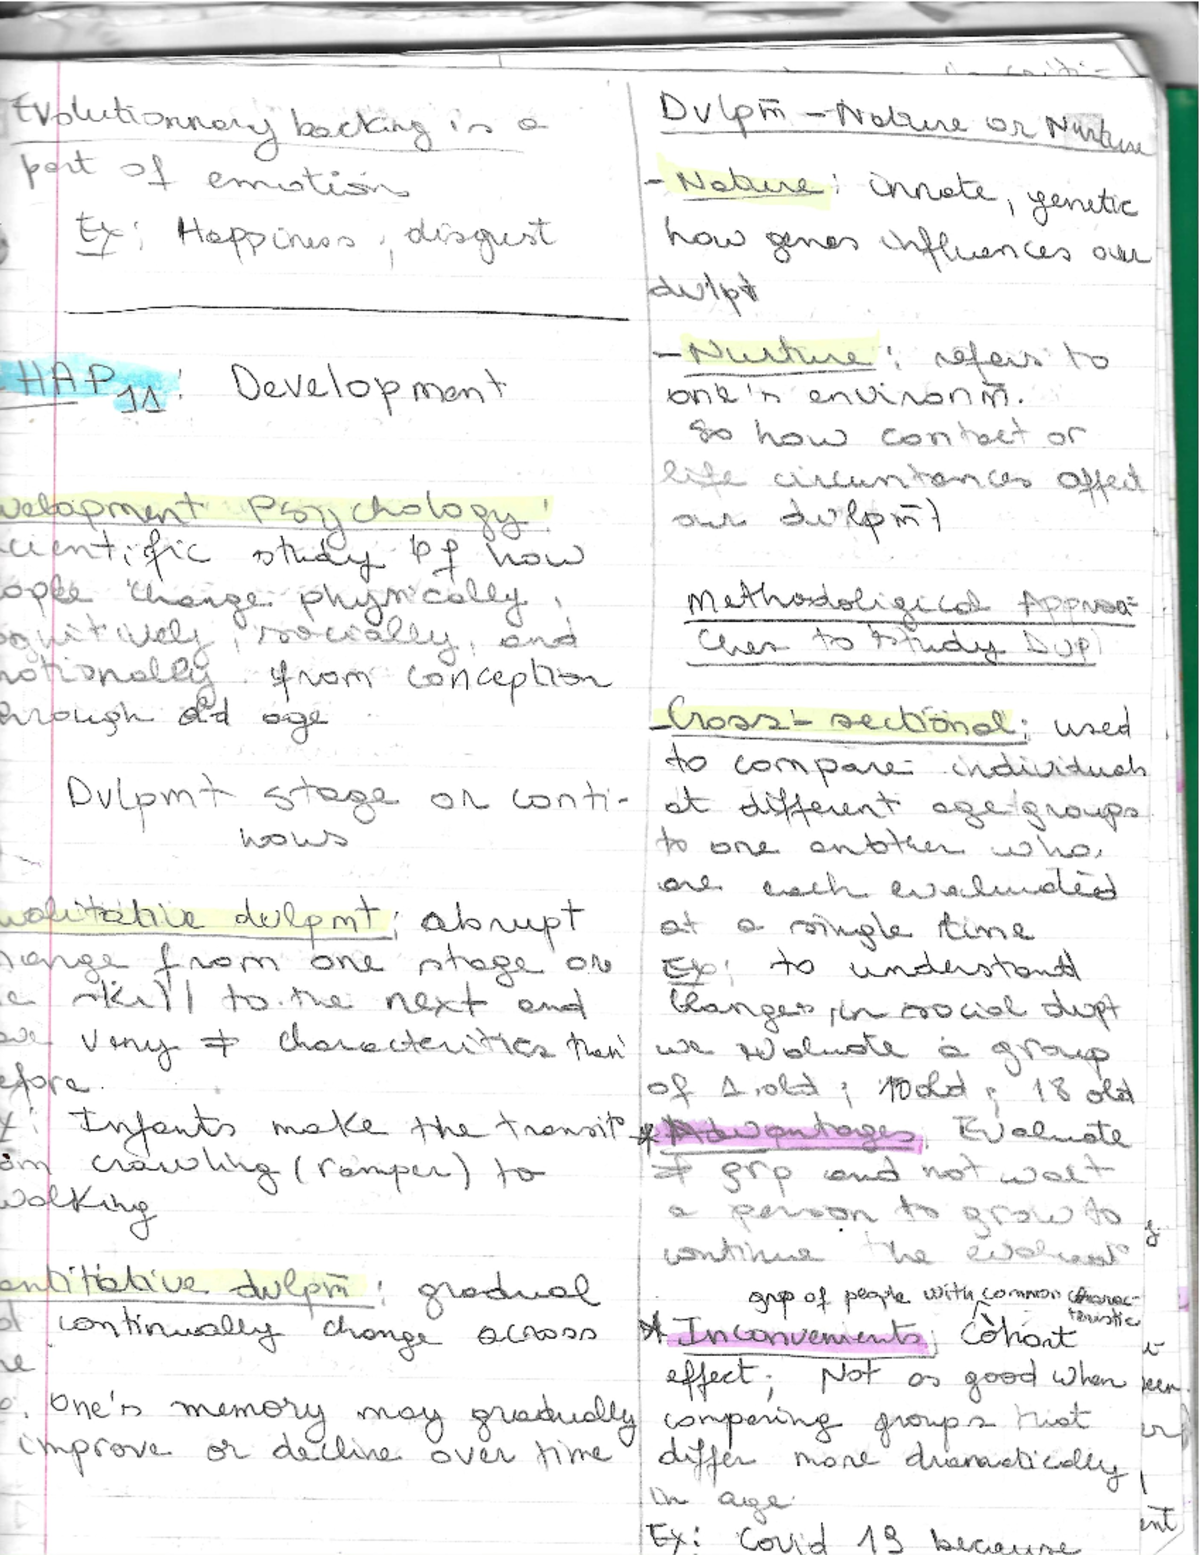 Evolutionnary backing is a
part of emotions
Ex: Happiness, disgust
HAP 11: Development
velopment Psychology:
cientific study of how
ople change physically,
ognitively, socially, and
motionally from conception
hrough old age
Dvlpmt stage or conti-
nous
ualitative dvlpmt: abrupt
hange from one stage or
skill to the next and
very ≠ characteritics than
efore.
Infants make the transit°
om crawling (ramper) to
walking
antitiative dvlpm̄: gradual
continually change across
one's memory may gradually
improve or decline over time
Dvlpm̄ - Nature or Nurture
- Nature: innate, genetic
how genes influences our
dvlpt
- Nurture: refers to
one's environm̄.
So how contact or
life circumtances affect
our dvlpm̄)
Methodoligical Approa-
ches to study Dvp
- Cross-sectional: used
to compare individuals
at different age groups
to one another who
are each evaluated
at a single time
Ex: to understand
changes in social dvpt
we evaluate a group
of 1 old; 10 old; 18 old
* Advantages: Evaluate
≠ grp and not wait
a person to grow to
continue the evaluat°
grp of people with common charac-
teristic
* Inconvenients: Cohort
effect; Not as good when
comparing groups that
differ more dramatically
in age
Ex: Covid 19 because